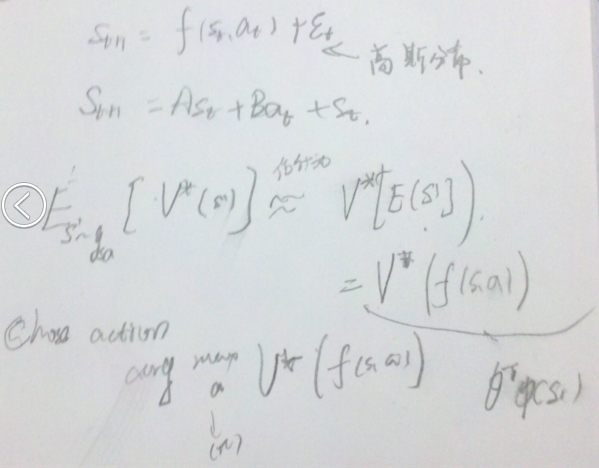 S_{t+1} = f(s_t, a_t) + ε_t
← 高斯分布.
S_{t+1} = As_t + Ba_t + ε_t.
E_{s'~P_{sa}} [V*(s')] ≈ V*(E[s']).
= V*(f(s,a))
Choose action
arg max_a V*(f(s,a))
θ^T φ(s)